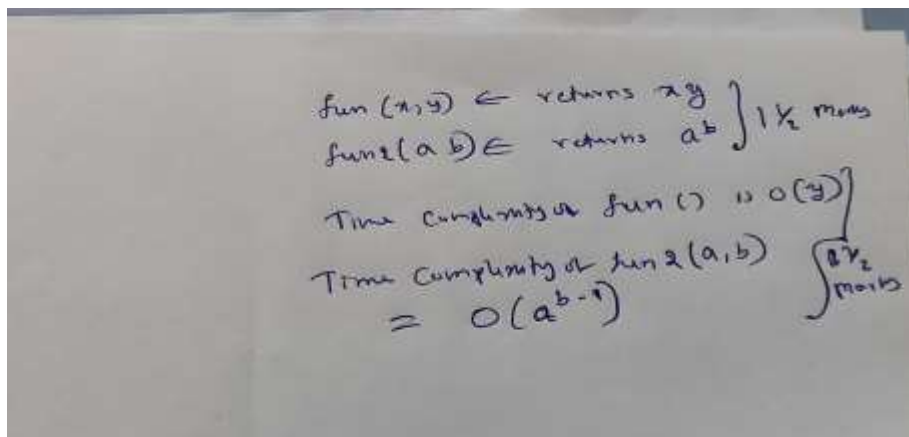 fun (x, y) ← returns xy
fun2(a b) ∈ returns a^b } 1 ½ marks
Time Complexity of fun () is O(y)
Time Complexity of fun2(a, b)
= O(a^{b-1})
½ marks